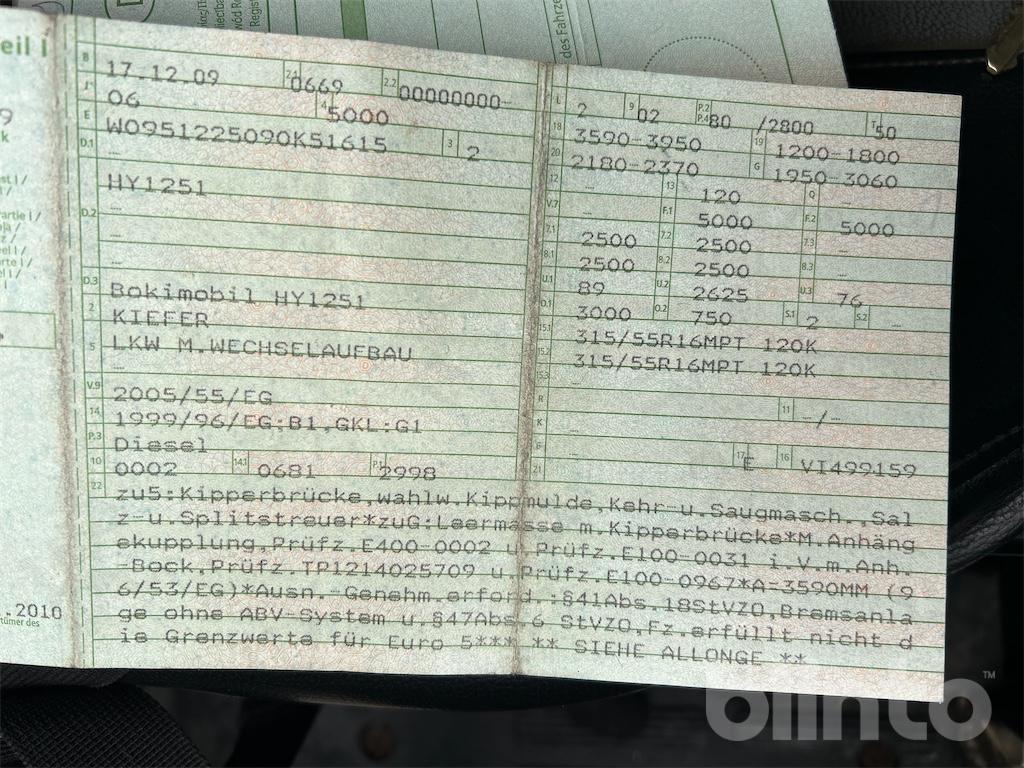 eil I
des Fahrze
B 17.12.09 2.1 0669 2.2 00000000-
J 06 4 5000
E W0951225090K51615 3 2
D.1 –
HY1251
D.2 –
–
–
D.3 Bokimobil HY1251
2 KIEFER
5 LKW M.WECHSELAUFBAU
–
V.9 2005/55/EG
14 1999/96/EG;B1,GKL:G1
P.3 Diesel
10 0002 14.1 0681 P.1 2998
L 2 9 02 P.2 P.4 80 /2800 T 50
18 3590-3950 19 1200-1800
20 2180-2370 G 1950-3060
12 – 13 120 Q –
V.7 – F.1 5000 F.2 5000
7.1 2500 7.2 2500 7.3 –
8.1 2500 8.2 2500 8.3 –
U.1 89 U.2 2625 U.3 76
O.1 3000 O.2 750 S.1 2 S.2 –
15.1 315/55R16MPT 120K
15.2 315/55R16MPT 120K
15.3 –
R – 11 –/–
K –
6 – 17 E 16 VI499159
21
22 zu5:Kipperbrücke,wahlw.Kippmulde,Kehr-u.Saugmasch.,Sal
z-u.Splitstreuer*zuG:Leermasse m.Kipperbrücke*M.Anhäng
ekupplung,Prüfz.E400-0002 u.Prüfz.E100-0031 i.V.m.Anh.
-Bock,Prüfz.TP1214025709 u.Prüfz.E100-0967*A-3590MM (9
6/53/EG)*Ausn.-Genehm.erford.:§41Abs.18StVZO,Bremsanla
ge ohne ABV-System u.§47Abs.6 StVZO,Fz.erfüllt nicht d
ie Grenzwerte für Euro 5*** ** SIEHE ALLONGE **
.2010
blinto™